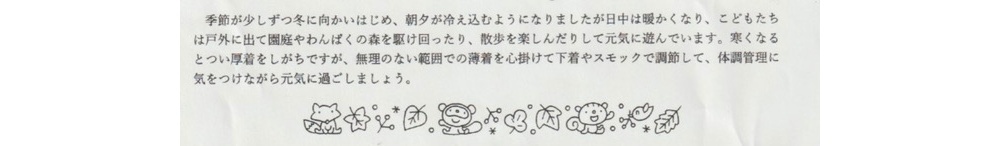 季節が少しずつ冬に向かいはじめ、朝夕が冷え込むようになりましたが日中は暖かくなり、こどもたち
は戸外に出て園庭やわんぱくの森を駆け回ったり、散歩を楽しんだりして元気に遊んでいます。寒くなる
とつい厚着をしがちですが、無理のない範囲での薄着を心掛けて下着やスモックで調節して、体調管理に
気をつけながら元気に過ごしましょう。